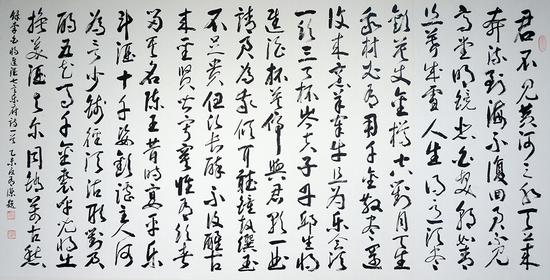 君不见黄河之水天上来
奔流到海不復回君不见
高堂明镜悲白髮朝如青
丝暮成雪人生得意须尽
歡莫使金樽空對月天生
我材必有用千金散尽還
復来烹羊宰牛且为乐会须
一饮三百杯岑夫子丹邱生将
进酒杯莫停與君歌一曲
請君为我倾耳聽鐘鼓馔玉
不足贵但願长醉不復醒古
来圣贤皆寂寞惟有饮者
留其名陈王昔时宴平乐
斗酒十千恣歡谑主人何
为言少钱径须沽取對君
酌五花马千金裘呼儿将出
换美酒与尔同銷萬古愁
錄李白将进酒七言乐府诗一首 乙未